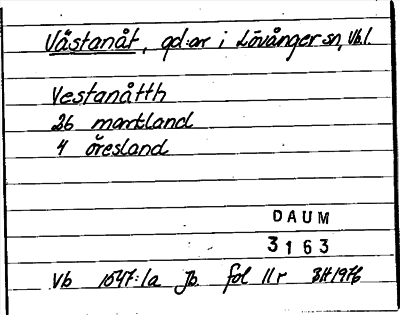 Västanåt, gd:ar i Lövånger sn, Vb.l.
Vestanåtth
26 markland
4 öresland
DAUM
3163
Vb 1547:1a Jb. fol 11r BH 1976